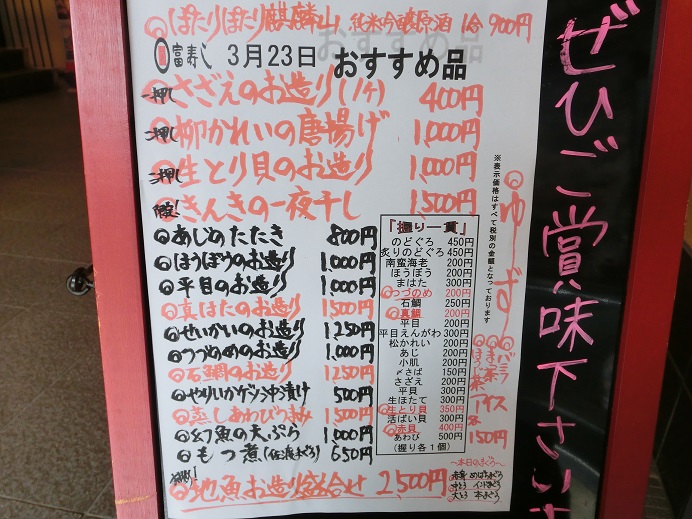 ぽたりぽたり麒麟山 純米吟醸原酒 1合 900円
富寿し 3月23日 おすすめ品
一押し さざえのお造り(1ヶ) 400円
二押し 柳かれいの唐揚げ 1,000円
三押し 生とり貝のお造り 1,000円
きんきの一夜干し 1,500円
あじのたたき 800円
ほうぼうのお造り 1,000円
平目のお造り 1,000円
真はたのお造り 1,500円
せいかいのお造り 1,250円
つづのめのお造り 1,000円
石鯛のお造り 1,250円
やりいかゲソ沖漬け 500円
蒸しあわび
幻魚の天ぷら 1,000円
もつ煮 650円
地魚お造り盛合せ 2,500円
「握り一貫」
のどぐろ 450円
炙りのどぐろ 450円
南蛮海老 200円
ほうぼう 200円
まはた 300円
つづのめ 200円
石鯛 250円
真鯛 200円
平目 200円
平目えんがわ 300円
松かれい 200円
あじ 200円
小肌 200円
〆さば 150円
さざえ 200円
平貝 300円
生ほたて 300円
生とり貝 350円
活ばい貝 300円
赤貝 400円
あわび 500円
(握り各1個)
※表示価格はすべて税別の金額となっております
ゆず
バニラ
ほうじ茶
アイス
150円
〜本日のまぐろ〜
赤身 めばちまぐろ
中とろ インドまぐろ
大とろ 本まぐろ
ぜひご賞味下さいませ